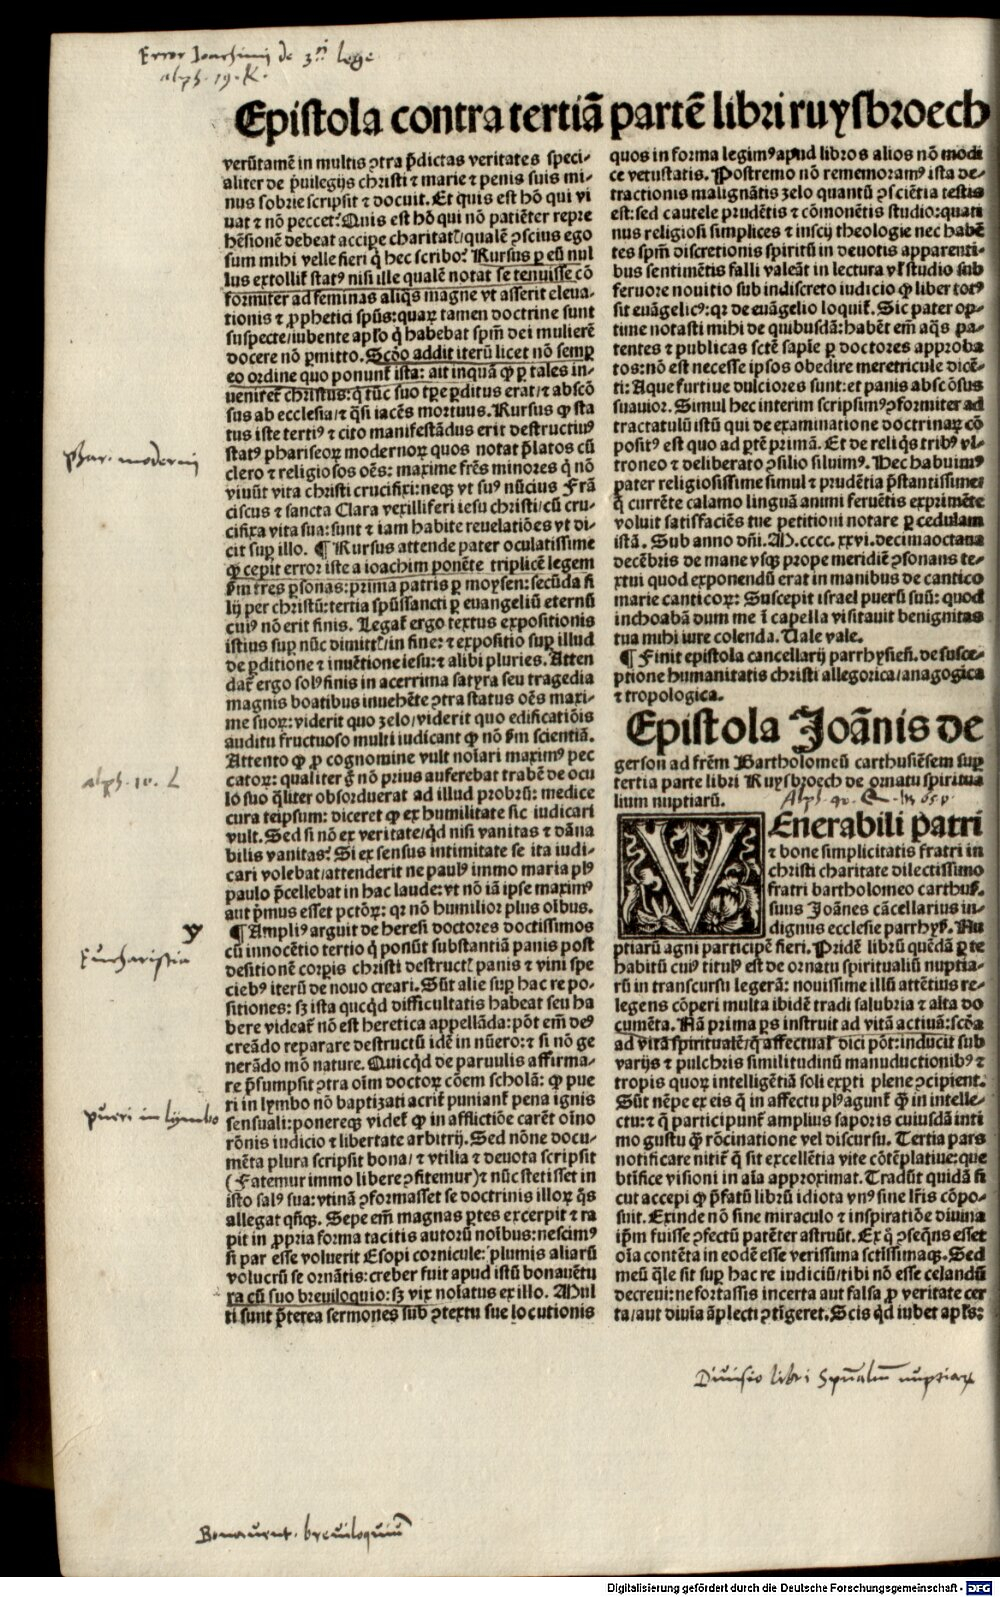 Error Joachimi de 3ª lege
alph. 19. K.
Epistola contra tertiã partẽ libri ruysbroech
verũtamẽ in multis ꝯtra p̃dictas veritates speci-
aliter de p̃uilegijs christi ⁊ marie ⁊ penis suis mi-
nus sobrie scripsit ⁊ docuit. Et quis est hõ qui vi
uat ⁊ nõ peccet? Quis est hõ qui nõ patiẽter repre
hẽsionẽ debeat accipe charitatꝭ/qualẽ ꝯscius ego
sum mihi velle fieri q̃ hec scribo? Rursus ꝑ eũ nul
lus extollit᷑ statꝰ nisi ille qualẽ notat se tenuisse cõ
formiter ad feminas aliq̃s magne vt asserit eleua-
tionis ⁊ ꝓphetici spũs: quaꝝ tamen doctrine sunt
suspecte/iubente apl̃o q̃ habebat spm̃ dei mulierẽ
docere nõ ꝑmitto. Scd̃o addit iterũ licet nõ semꝑ
eo ordine quo ponunt᷑ ista: ait inquã ꝙ ꝑ tales in-
uenitet᷑ christus: q̃ tũc suo tꝑe ꝑditus erat/⁊ abscõ
sus ab ecclesia/⁊ q̃si iacẽs mortuus. Rursus ꝙ sta
tus iste tertiꝰ ⁊ cito manifestãdus erit destructiuꝰ
statꝰ phariseoꝝ modernoꝝ quos notat p̃latos cũ
clero ⁊ religiosos oẽs: maxime frẽs minores q̃ nõ
viuũt vita christi crucifixi: neqꝫ vt suꝰ nũcius Frã
ciscus ⁊ sancta Clara vexilliferi iesu christi/cũ cru-
cifixa vita sua: sunt ⁊ iam habite reuelatiões vt di-
cit suꝑ illo. ¶ Rursus attende pater oculatissime
ꝙ cepit error iste a ioachim ponẽte triplicẽ legem
ẜm tres ꝑsonas: prima patris ꝑ moysen: secũda fi
lij per christũ: tertia spũssancti ꝑ euangeliũ eternũ
cuiꝰ nõ erit finis. Legat᷑ ergo textus expositionis
istius suꝑ nũc dimittꝭ/in fine: ⁊ expositio suꝑ illud
de ꝑditione ⁊ inuẽtione iesu: ⁊ alibi pluries. Atten
dat᷑ ergo solꝰ finis in acerrima satyra seu tragedia
magnis boatibus inuehẽte ꝯtra status oẽs maxi-
me suoꝝ: viderit quo zelo/viderit quo edificatiõis
auditu fructuoso multi iudicant ꝙ nõ ẜm scientiã.
Attento ꝙ ꝓ cognomine vult noĩari maximꝰ pec
catoꝝ: qualiter g̃ nõ prius auferebat trabẽ de ocu
lo suo q̃liter obsorduerat ad illud probrũ: medice
cura teipsum: diceret ꝙ ex humilitate sic iudicari
vult. Sed si nõ ex veritate/qd̃ nisi vanitas ⁊ dãna
bilis vanitas? Si ex sensus intimitate se ita iudi-
cari volebat/attenderit ne paulꝰ immo maria plꝰ
paulo p̃cellebat in hac laude: vt nõ iã ipse maximꝰ
aut p̃mus esset pctõꝝ: qr nõ humilior plus oĩbus.
¶Ampliꝰ arguit de heresi doctores doctissimos
cũ innocẽtio tertio q̃ ponũt substantiã panis post
desitionẽ corꝑis christi destructꝭ panis ⁊ vini spe
ciebꝰ iterũ de nouo creari. Sũt alie suꝑ hac re po-
sitiones: sꝫ ista qucqd̃ difficultatis habeat seu ha
bere videat᷑ nõ est heretica appellãda: põt em̃ deꝰ
creãdo reparare destructũ idẽ in nũero: ⁊ si nõ ge
nerãdo mõ nature. Quicqd̃ de paruulis affirma-
re p̃sumpsit ꝯtra oĩm doctoꝝ cõem scholã: ꝙ pue
ri in lymbo nõ baptizati acrit᷑ puniant᷑ pena ignis
sensuali: ponereqꝫ videt᷑ ꝙ in afflictiõe carẽt oĩno
rõnis iudicio ⁊ libertate arbitrij. Sed nõne docu-
mẽta plura scripsit bona/⁊ vtilia ⁊ deuota scripsit
(Fatemur immo libere ꝯfitemur) ⁊ nũc stetisset in
isto salꝰ sua: vtinã ꝯformasset se doctrinis illoꝝ q̃s
allegat qñqꝫ. Sepe em̃ magnas ꝑtes excerpit ⁊ ra
pit in ꝓpria forma tacitis autorũ noĩbus: nescimꝰ
si par esse voluerit Esopi cornicule: plumis aliarũ
volucrũ se ornãtis: creber fuit apud istũ bonauẽtu
ra cũ suo breuiloquio: sꝫ vix noĩatus ex illo. Mul
ti sunt p̃terea sermones sub ꝯtextu sue locutionis
quos in forma legimꝰ apud libros alios nõ modi
ce vetustatis. Postremo nõ rememoramꝰ ista de-
tractionis malignãtis zelo quantũ ꝯsciẽtia testis
est: sed cautele prudẽtis ⁊ cõmonẽtis studio: quati
nus religiosi simplices ⁊ inscij theologie nec habẽ
tes spm̃ discretionis spirituũ in deuotis apparenti-
bus sentimẽtis falli valeãt in lectura vl̃ studio sub
feruore nouitio sub indiscreto iudicio ꝙ liber totꝰ
sit euãgelicꝰ: qr de euãgelio loquit᷑. Sic pater op-
time notasti mihi de quibusdã: habẽt em̃ aq̃s pa-
tentes ⁊ publicas sctẽ sapĩe ꝑ doctores approba
tos: nõ est necesse ipsos obedire meretricule dicẽ-
ti: Aque furtiue dulciores sunt: et panis abscõsus
suauior. Simul hec interim scripsimꝰ ꝯformiter ad
tractatulũ istũ qui de examinatione doctrinaꝝ cõ
positꝰ est quo ad ꝑtẽ primã. Et de reliq̃s tribꝰ vl-
troneo ⁊ deliberato ꝯsilio siluimꝰ. Hec habuimꝰ
pater religiosissime simul ⁊ prudẽtia p̃stantissime:
q̃ currẽte calamo linguã animi feruẽtis exprimẽte
voluit satisfaciẽs tue petitioni notare ꝑ cedulam
istã. Sub anno dñi. M.cccc.xxvi. decimaoctaua
decẽbris de mane vsqꝫ prope meridiẽ ꝯsonans te-
xtui quod exponendũ erat in manibus de cantico
marie canticoꝝ: Suscepit israel puerũ suũ: quod
inchoabã dum me ĩ capella visitauit benignitas
tua mihi iure colenda. Uale vale.
¶ Finit epistola cancellarij parrhysieñ. de susce-
ptione humanitatis christi allegorica/anagogica
⁊ tropologica.
Epistola Joãnis de
gerson ad frẽm Bartholomeũ carthusiẽsem suꝑ
tertia parte libri Ruysbroech de ornatu spiritua
lium nuptiarũ.
VEnerabili patri
⁊ bone simplicitatis fratri in
christi charitate dilectissimo
fratri bartholomeo carthuẜ.
suus Joãnes cãcellarius in-
dignus ecclesie parrhyẜ. Nu
ptiarũ agni participẽ fieri. Pridẽ librũ quẽdã ꝑ te
habitũ cuiꝰ titulꝰ est de ornatu spiritualiũ nuptia-
rũ in transcursu legerã: nouissime illũ attẽtius re-
legens cõperi multa ibidẽ tradi salubria ⁊ alta do
cumẽta. Nã prima ꝑs instruit ad vitã actiuã: scd̃a
ad vitã spiritualẽ/q̃ affectualꝭ dici põt: inducit sub
varijs ⁊ pulchris similitudinũ manuductionibꝰ ⁊
tropis quoꝝ intelligẽtiã soli exꝑti plene ꝯcipient.
Sũt nẽpe ex eis q̃ in affectu plꝰ agunt᷑ q̃ᷓ in intelle-
ctu: ⁊ q̃ participunt᷑ amplius saporis cuiusdã inti
mo gustu q̃ᷓ rõcinatione vel discursu. Tertia pars
notificare nitit᷑ q̃ sit excellẽtia vite cõtẽplatiue: que
btĩfice visioni in aĩa approximat. Tradũt quidã si
cut accepi ꝙ p̃fatũ librũ idiota vnꝰ sine lr̃is cõpo-
suit. Exinde nõ sine miraculo ⁊ inspiratiõe diuina
ip̃m fuisse ꝯfectũ patẽter astruũt. Ex q̃ ꝯseq̃ns esset
oĩa contẽta in eodẽ esse verissima sctĩssimaqꝫ. Sed
meũ q̃le sit suꝑ hac re iudiciũ/tibi nõ esse celandũ
decreui: ne fortassis incerta aut falsa ꝓ veritate cer
ta/aut diuĩa ãplecti ꝯtĩgeret. Scis qd̃ iubet apl̃s:
phar. moderni
alph. 10. L
y
Eucharistia
pueri in lymbo
Diuisio libri Spũaliũ nuptiaꝝ
Bonauent. breuiloquiũ
Digitalisierung gefördert durch die Deutsche Forschungsgemeinschaft - DFG